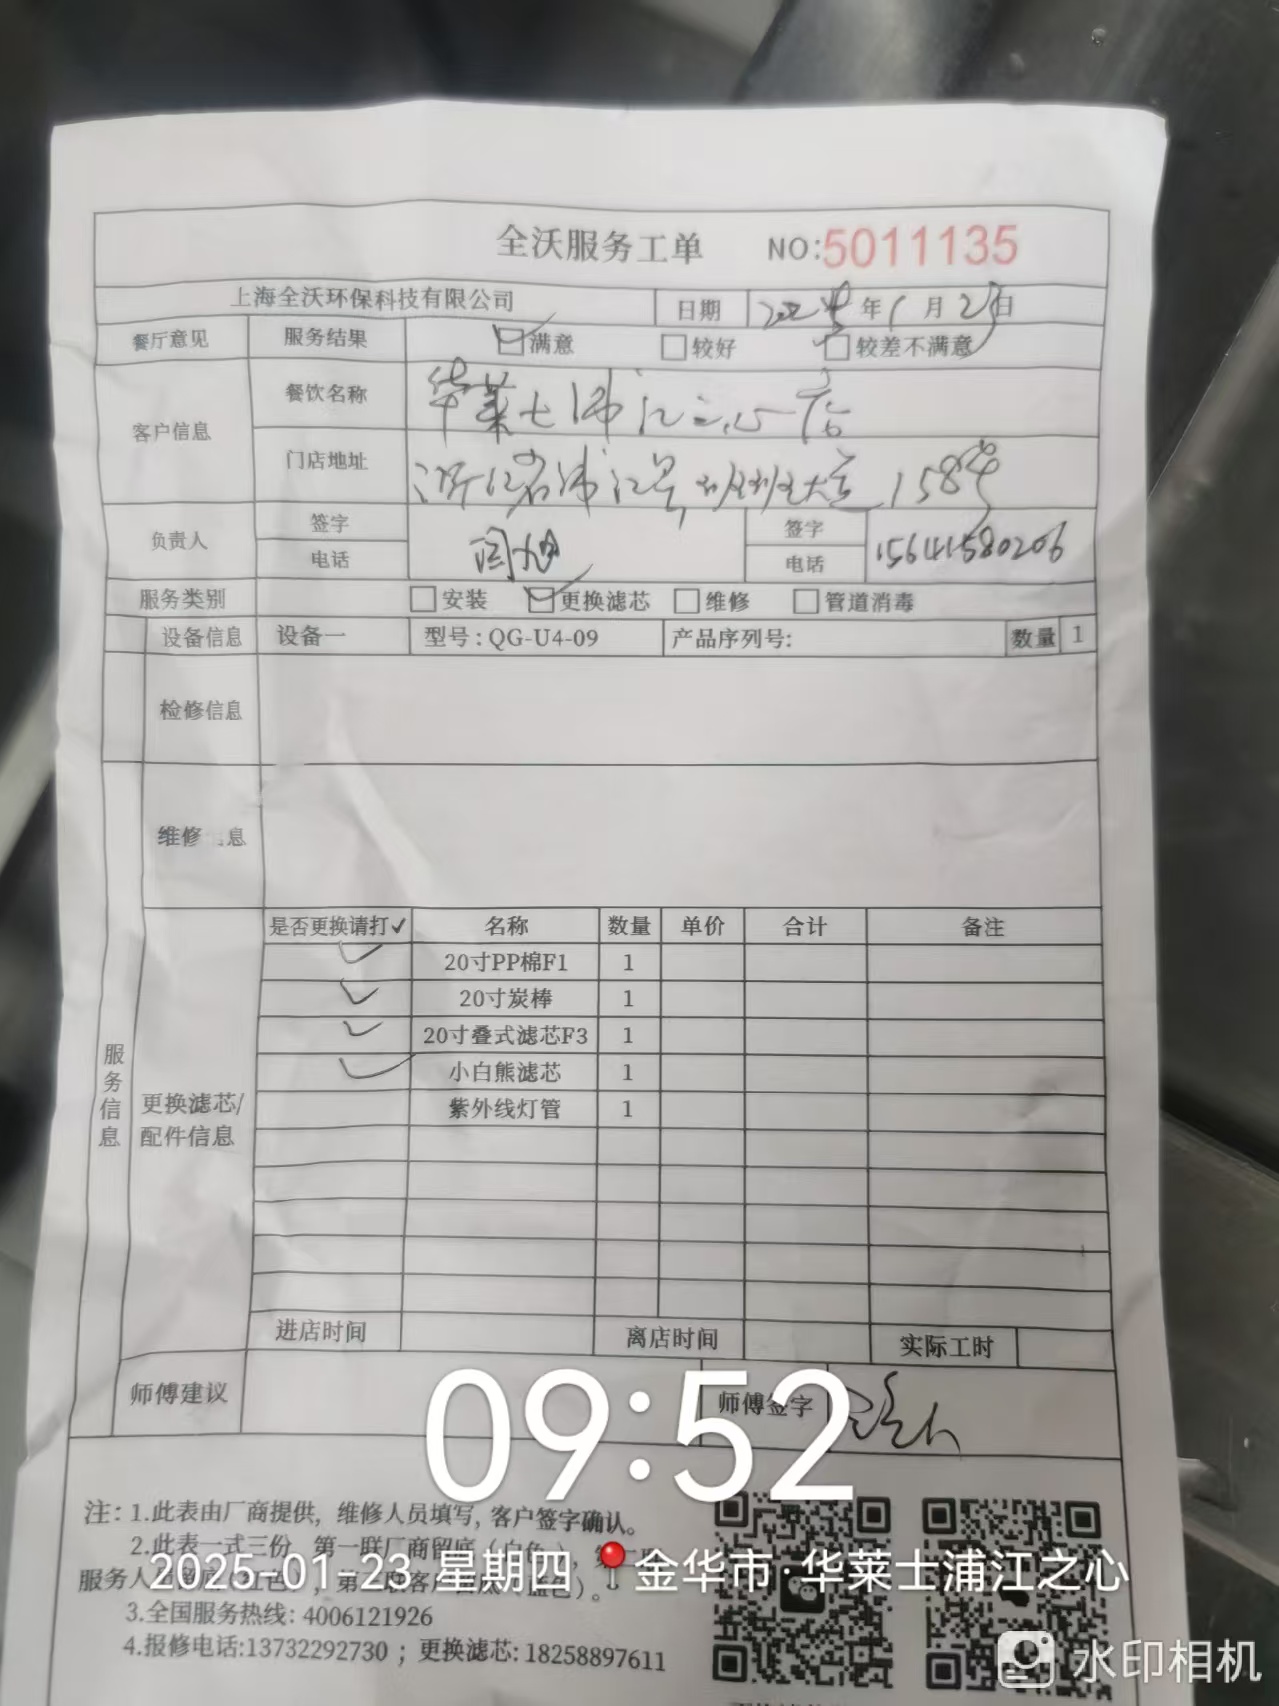 全沃服务工单 NO:5011135
上海全沃环保科技有限公司 日期 年1月23日
餐厅意见 服务结果 满意 较好 较差不满意
客户信息 餐饮名称 华莱士浦江之心店
门店地址 浙江省浦江县 大道158号
负责人 签字 签字
电话 电话 15641580206
服务类别 安装 更换滤芯 维修 管道消毒
设备信息 设备一 型号:QG-U4-09 产品序列号: 数量 1
检修信息
维修 息
服务信息
更换滤芯/配件信息
是否更换请打✓ 名称 数量 单价 合计 备注
✓ 20寸PP棉F1 1
✓ 20寸炭棒 1
✓ 20寸叠式滤芯F3 1
✓ 小白熊滤芯 1
紫外线灯管 1
进店时间 离店时间 实际工时
师傅建议 师傅签字
09:52
注: 1.此表由厂商提供, 维修人员填写, 客户签字确认。
2.此表一式三份, 第一联厂商留底(白色),
服务人
2025-01-23 星期四 金华市·华莱士浦江之心
3.全国服务热线: 4006121926
4.报修电话:13732292730 ; 更换滤芯: 18258897611
水印相机